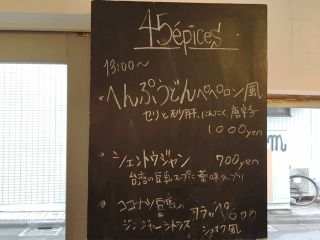 45épices
13:00〜
・へんぷうどんペペロン風
セリと砂肝、にんにく、唐辛子
1000yen
・シェントウジャン 700yen
台湾の豆乳スープに薬味たっぷり
・ココナツ豆乳
ジンジャーシトラス フラッペ 600
シェイク風